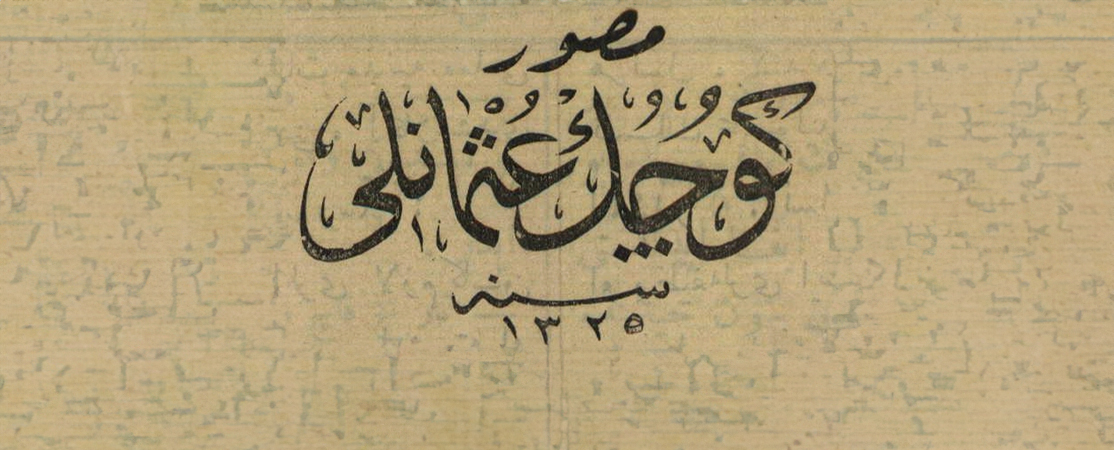 مصور
كوچك عثمانلى
سنه
١٣٢٥